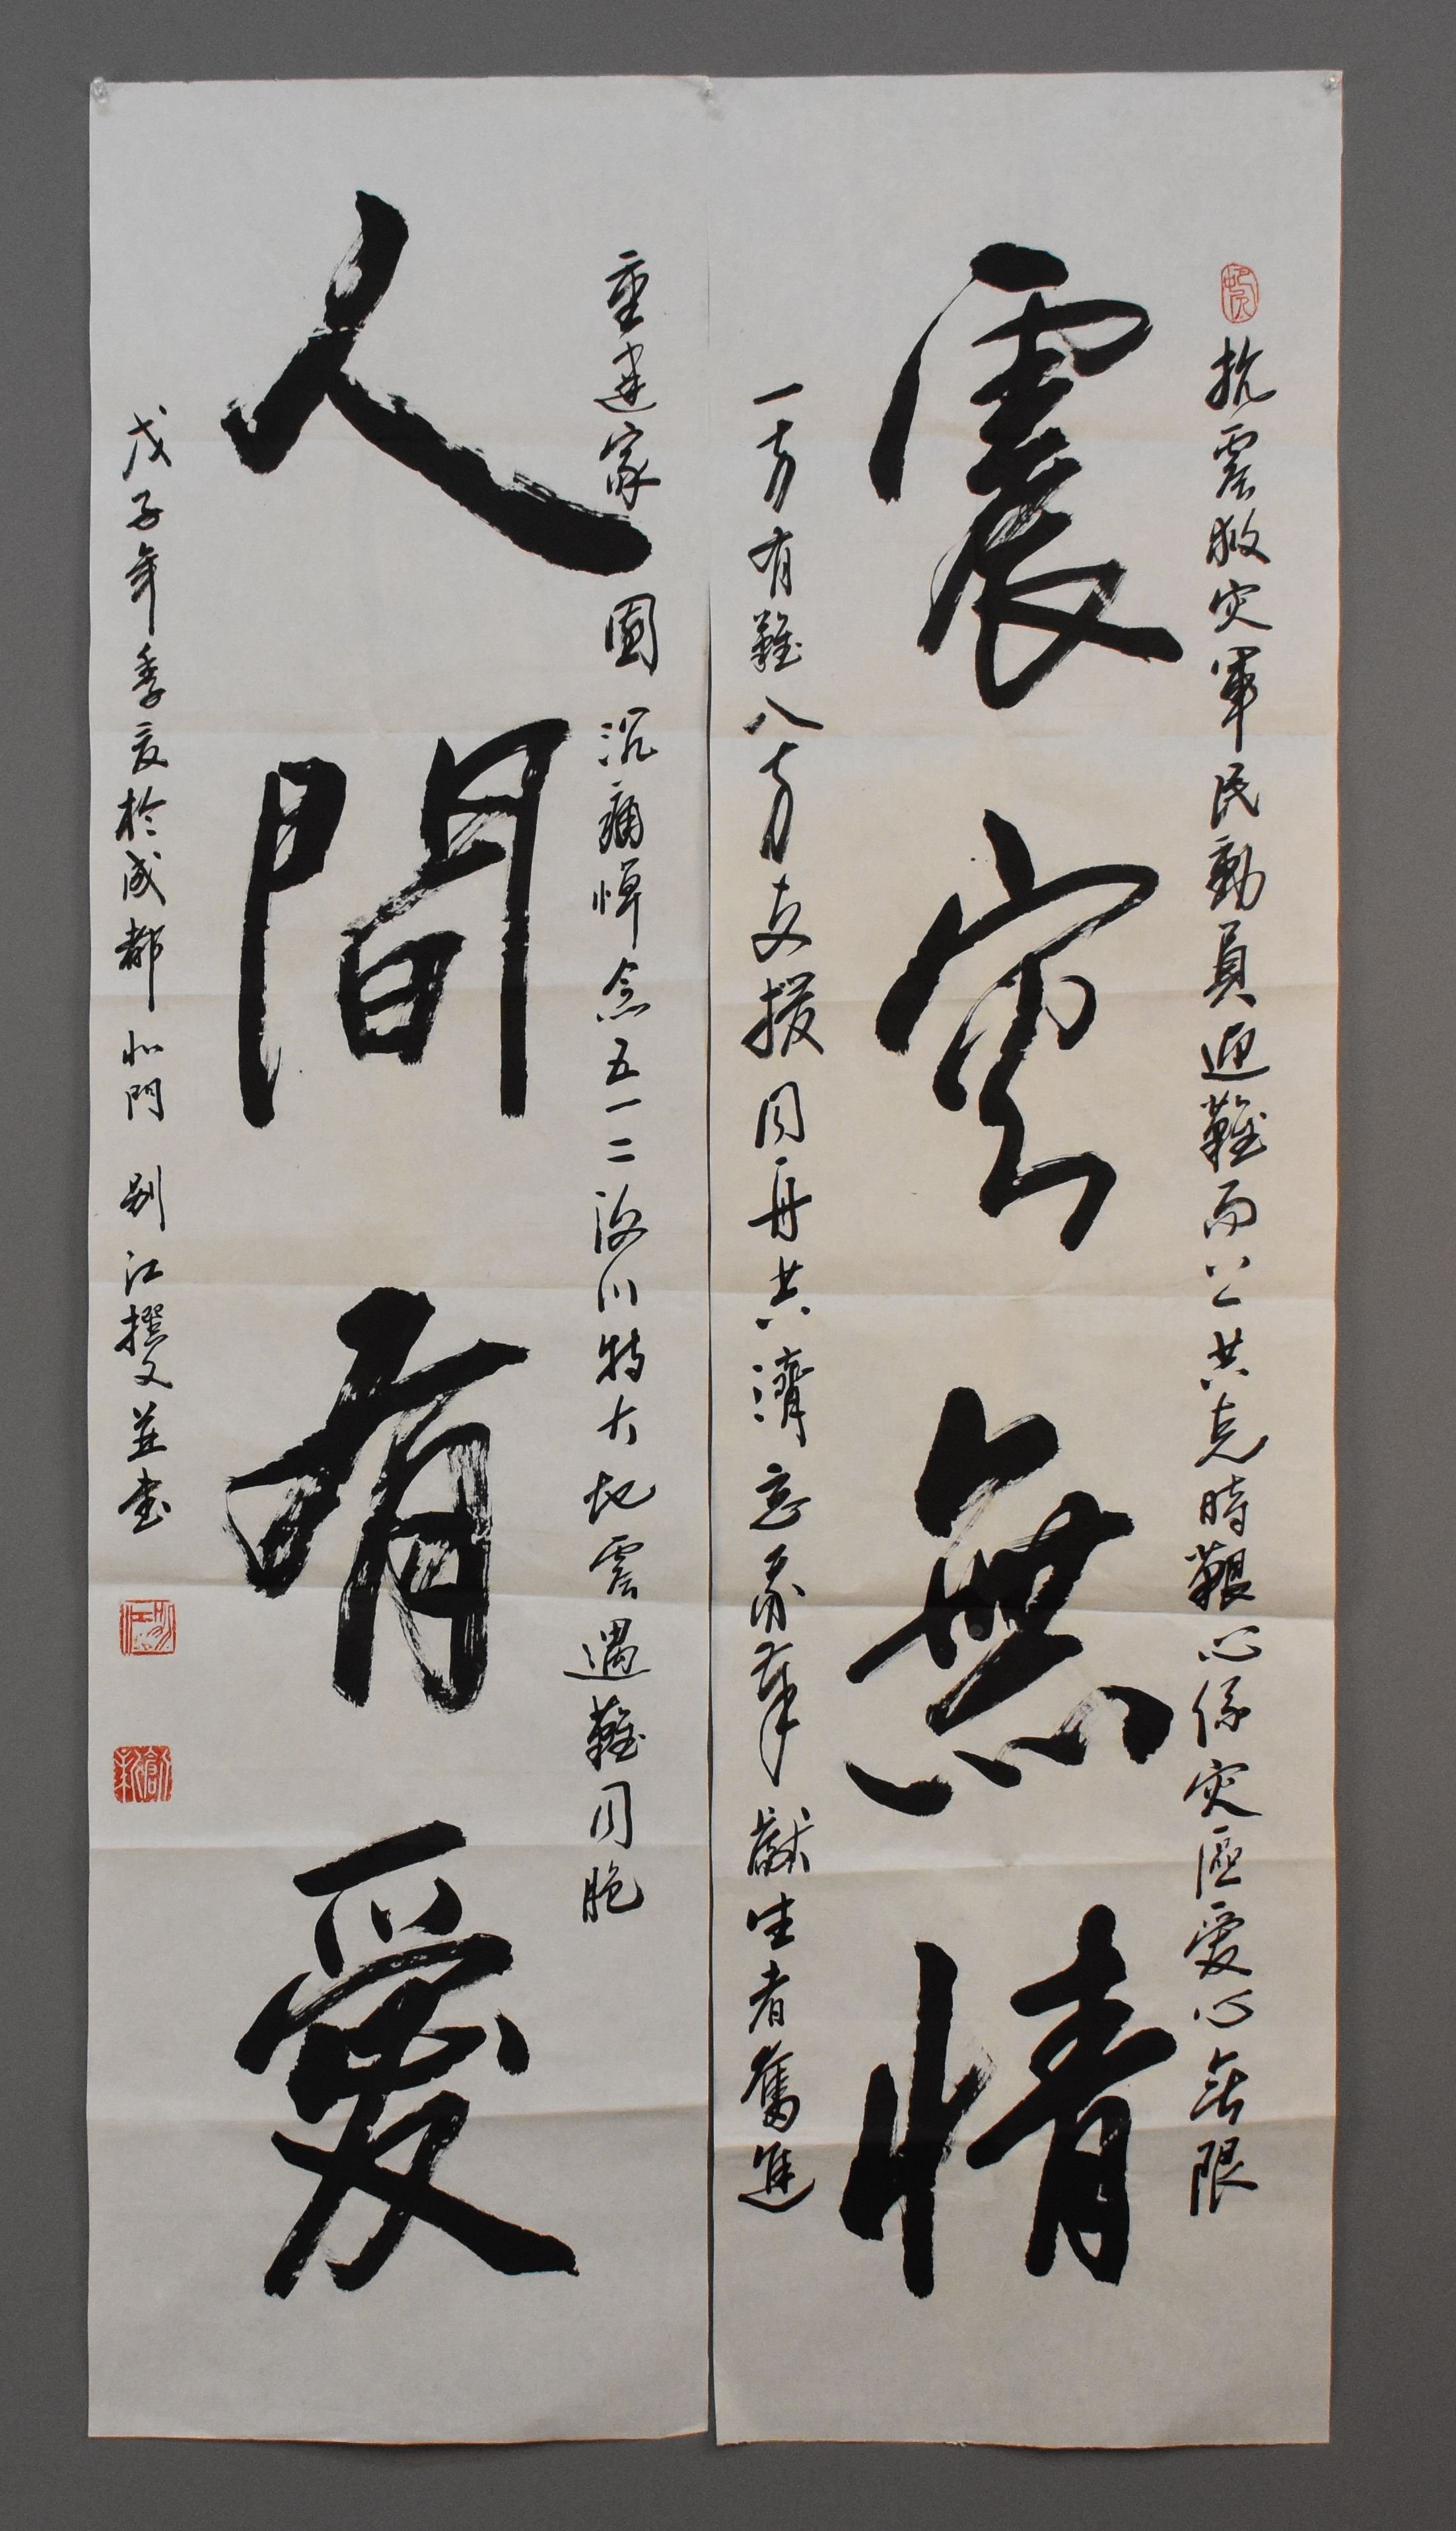 抗震救灾軍民動員迎難而上共克時艱心係灾區愛心无限
震灾無情
一方有難八方支援同舟共濟忘我奉獻生者奮進
重建家園沉痛悼念五一二汶川特大地震遇難同胞
人間有愛
戊子年季夏於成都北門別江撰文並書